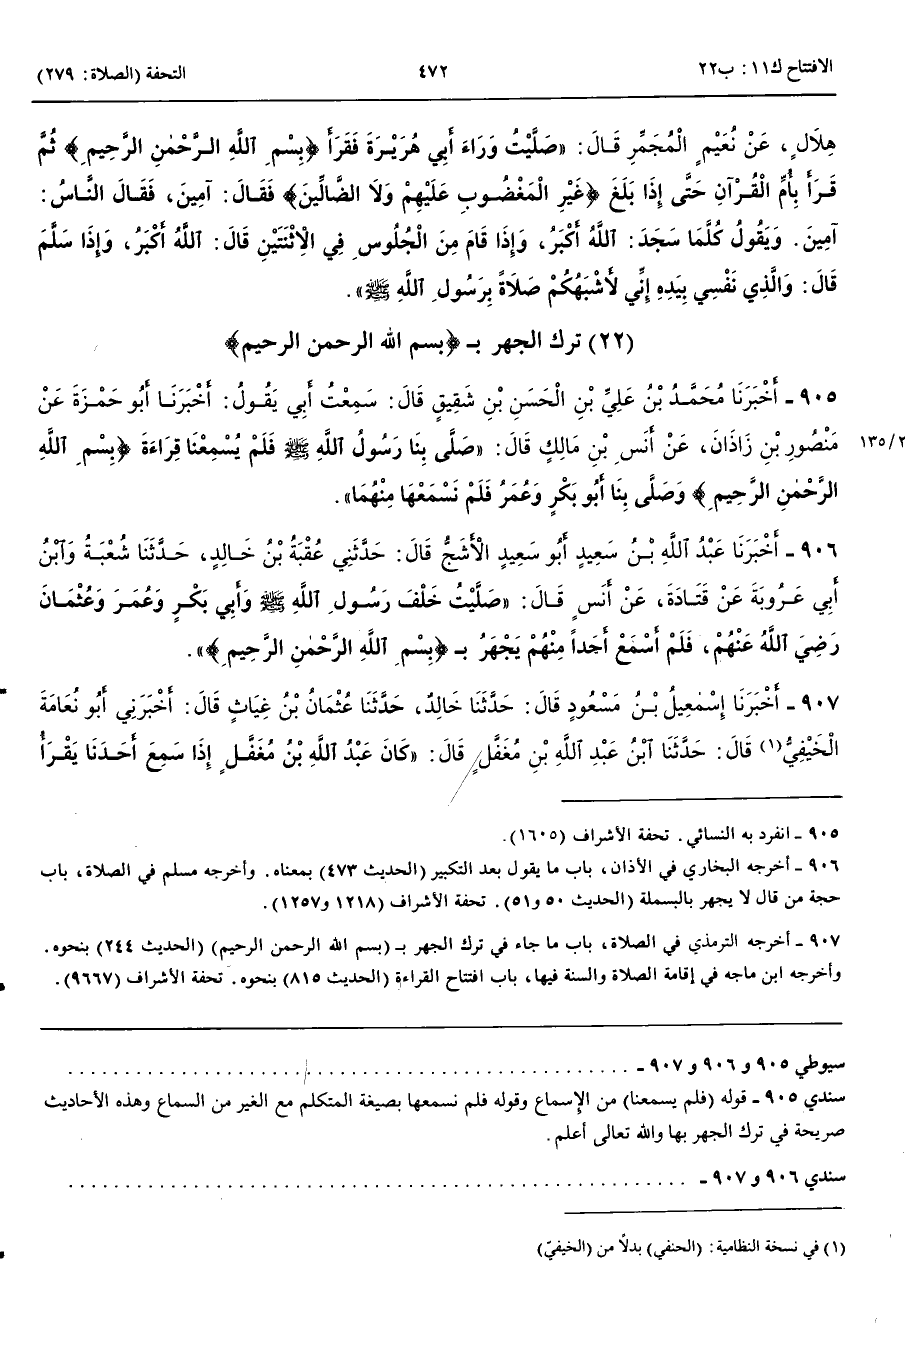 الافتتاح ك١١: ب٢٢
٤٧٢
التحفة (الصلاة: ٢٧٩)
هِلَالٍ، عَنْ نُعَيْمٍ الْمُجَمِّرِ قَالَ: «صَلَّيْتُ وَرَاءَ أَبِي هُرَيْرَةَ فَقَرَأَ ﴿بِسْمِ اللَّهِ الرَّحْمٰنِ الرَّحِيمِ﴾ ثُمَّ
قَرَأَ بِأُمِّ الْقُرْآنِ حَتَّى إِذَا بَلَغَ ﴿غَيْرِ الْمَغْضُوبِ عَلَيْهِمْ وَلَا الضَّالِّينَ﴾ فَقَالَ: آمِينَ، فَقَالَ النَّاسُ:
آمِينَ. وَيَقُولُ كُلَّمَا سَجَدَ: اللَّهُ أَكْبَرُ، وَإِذَا قَامَ مِنَ الْجُلُوسِ فِي الِاثْنَتَيْنِ قَالَ: اللَّهُ أَكْبَرُ، وَإِذَا سَلَّمَ
قَالَ: وَالَّذِي نَفْسِي بِيَدِهِ إِنِّي لَأَشْبَهُكُمْ صَلَاةً بِرَسُولِ اللَّهِ ﷺ».
(٢٢) ترك الجهر بـ ﴿بسم الله الرحمن الرحيم﴾
٩٠٥ - أَخْبَرَنَا مُحَمَّدُ بْنُ عَلِيِّ بْنِ الْحَسَنِ بْنِ شَقِيقٍ قَالَ: سَمِعْتُ أَبِي يَقُولُ: أَخْبَرَنَا أَبُو حَمْزَةَ عَنْ
مَنْصُورِ بْنِ زَاذَانَ، عَنْ أَنَسِ بْنِ مَالِكٍ قَالَ: «صَلَّى بِنَا رَسُولُ اللَّهِ ﷺ فَلَمْ يُسْمِعْنَا قِرَاءَةَ ﴿بِسْمِ اللَّهِ
١٣٥/٢
الرَّحْمٰنِ الرَّحِيمِ﴾ وَصَلَّى بِنَا أَبُو بَكْرٍ وَعُمَرُ فَلَمْ نَسْمَعْهَا مِنْهُمَا».
٩٠٦ - أَخْبَرَنَا عَبْدُ اللَّهِ بْنُ سَعِيدٍ أَبُو سَعِيدٍ الْأَشَجُّ قَالَ: حَدَّثَنِي عُقْبَةُ بْنُ خَالِدٍ، حَدَّثَنَا شُعْبَةُ وَابْنُ
أَبِي عَرُوبَةَ عَنْ قَتَادَةَ، عَنْ أَنَسٍ قَالَ: «صَلَّيْتُ خَلْفَ رَسُولِ اللَّهِ ﷺ وَأَبِي بَكْرٍ وَعُمَرَ وَعُثْمَانَ
رَضِيَ اللَّهُ عَنْهُمْ، فَلَمْ أَسْمَعْ أَحَداً مِنْهُمْ يَجْهَرُ بـ ﴿بِسْمِ اللَّهِ الرَّحْمٰنِ الرَّحِيمِ﴾».
٩٠٧ - أَخْبَرَنَا إِسْمٰعِيلُ بْنُ مَسْعُودٍ قَالَ: حَدَّثَنَا خَالِدٌ، حَدَّثَنَا عُثْمَانُ بْنُ غِيَاثٍ قَالَ: أَخْبَرَنِي أَبُو نُعَامَةَ
الْخَيْفِيُّ(١) قَالَ: حَدَّثَنَا ابْنُ عَبْدِ اللَّهِ بْنِ مُغَفَّلٍ قَالَ: «كَانَ عَبْدُ اللَّهِ بْنُ مُغَفَّلٍ إِذَا سَمِعَ أَحَدَنَا يَقْرَأُ
٩٠٥ - انفرد به النسائي. تحفة الأشراف (١٦٠٥).
٩٠٦ - أخرجه البخاري في الأذان، باب ما يقول بعد التكبير (الحديث ٤٧٣) بمعناه. وأخرجه مسلم في الصلاة، باب
حجة من قال لا يجهر بالبسملة (الحديث ٥٠ و٥١). تحفة الأشراف (١٢١٨ و١٢٥٧).
٩٠٧ - أخرجه الترمذي في الصلاة، باب ما جاء في ترك الجهر بـ (بسم الله الرحمن الرحيم) (الحديث ٢٤٤) بنحوه.
وأخرجه ابن ماجه في إقامة الصلاة والسنة فيها، باب افتتاح القراءة (الحديث ٨١٥) بنحوه. تحفة الأشراف (٩٦٦٧).
سيوطي ٩٠٥ و ٩٠٦ و ٩٠٧ - ........................................
سندي ٩٠٥ - قوله (فلم يسمعنا) من الإسماع وقوله فلم نسمعها بصيغة المتكلم مع الغير من السماع وهذه الأحاديث
صريحة في ترك الجهر بها والله تعالى أعلم.
سندي ٩٠٦ و ٩٠٧ - ........................................
(١) في نسخة النظامية: (الحنفي) بدلًا من (الخيفيّ)